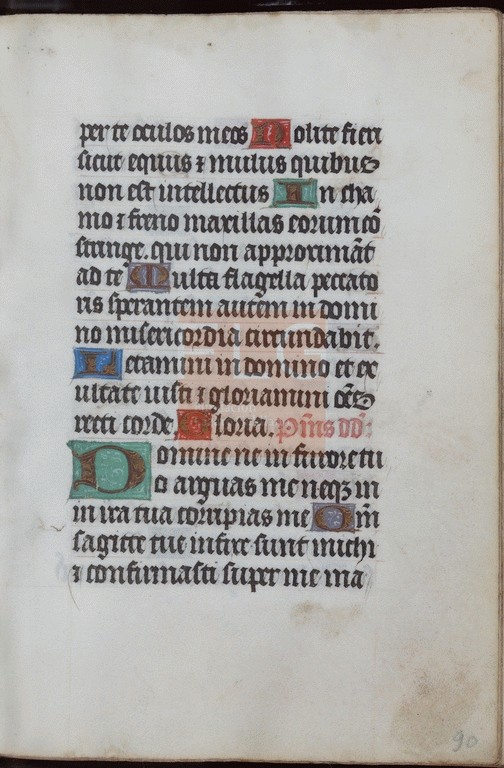 per te oculos meos Nolite fieri
sicut equus ⁊ mulus quibus
non est intellectus In cha
mo ⁊ freno maxillas eorum cō
stringe. qui non approximāt
ad te Multa flagella peccato
ris sperantem autem in domi
no misericordia circundabit.
Letamini in domino et ex
ultate iusti ⁊ gloriamini oēs
recti corde Gloria. Pm̄s dd̄:
Domine ne in furore tu
o arguas me neqꝫ in
in ira tua corripias me Qm̄
sagitte tue infixe sunt michi
⁊ confirmasti super me ma
90